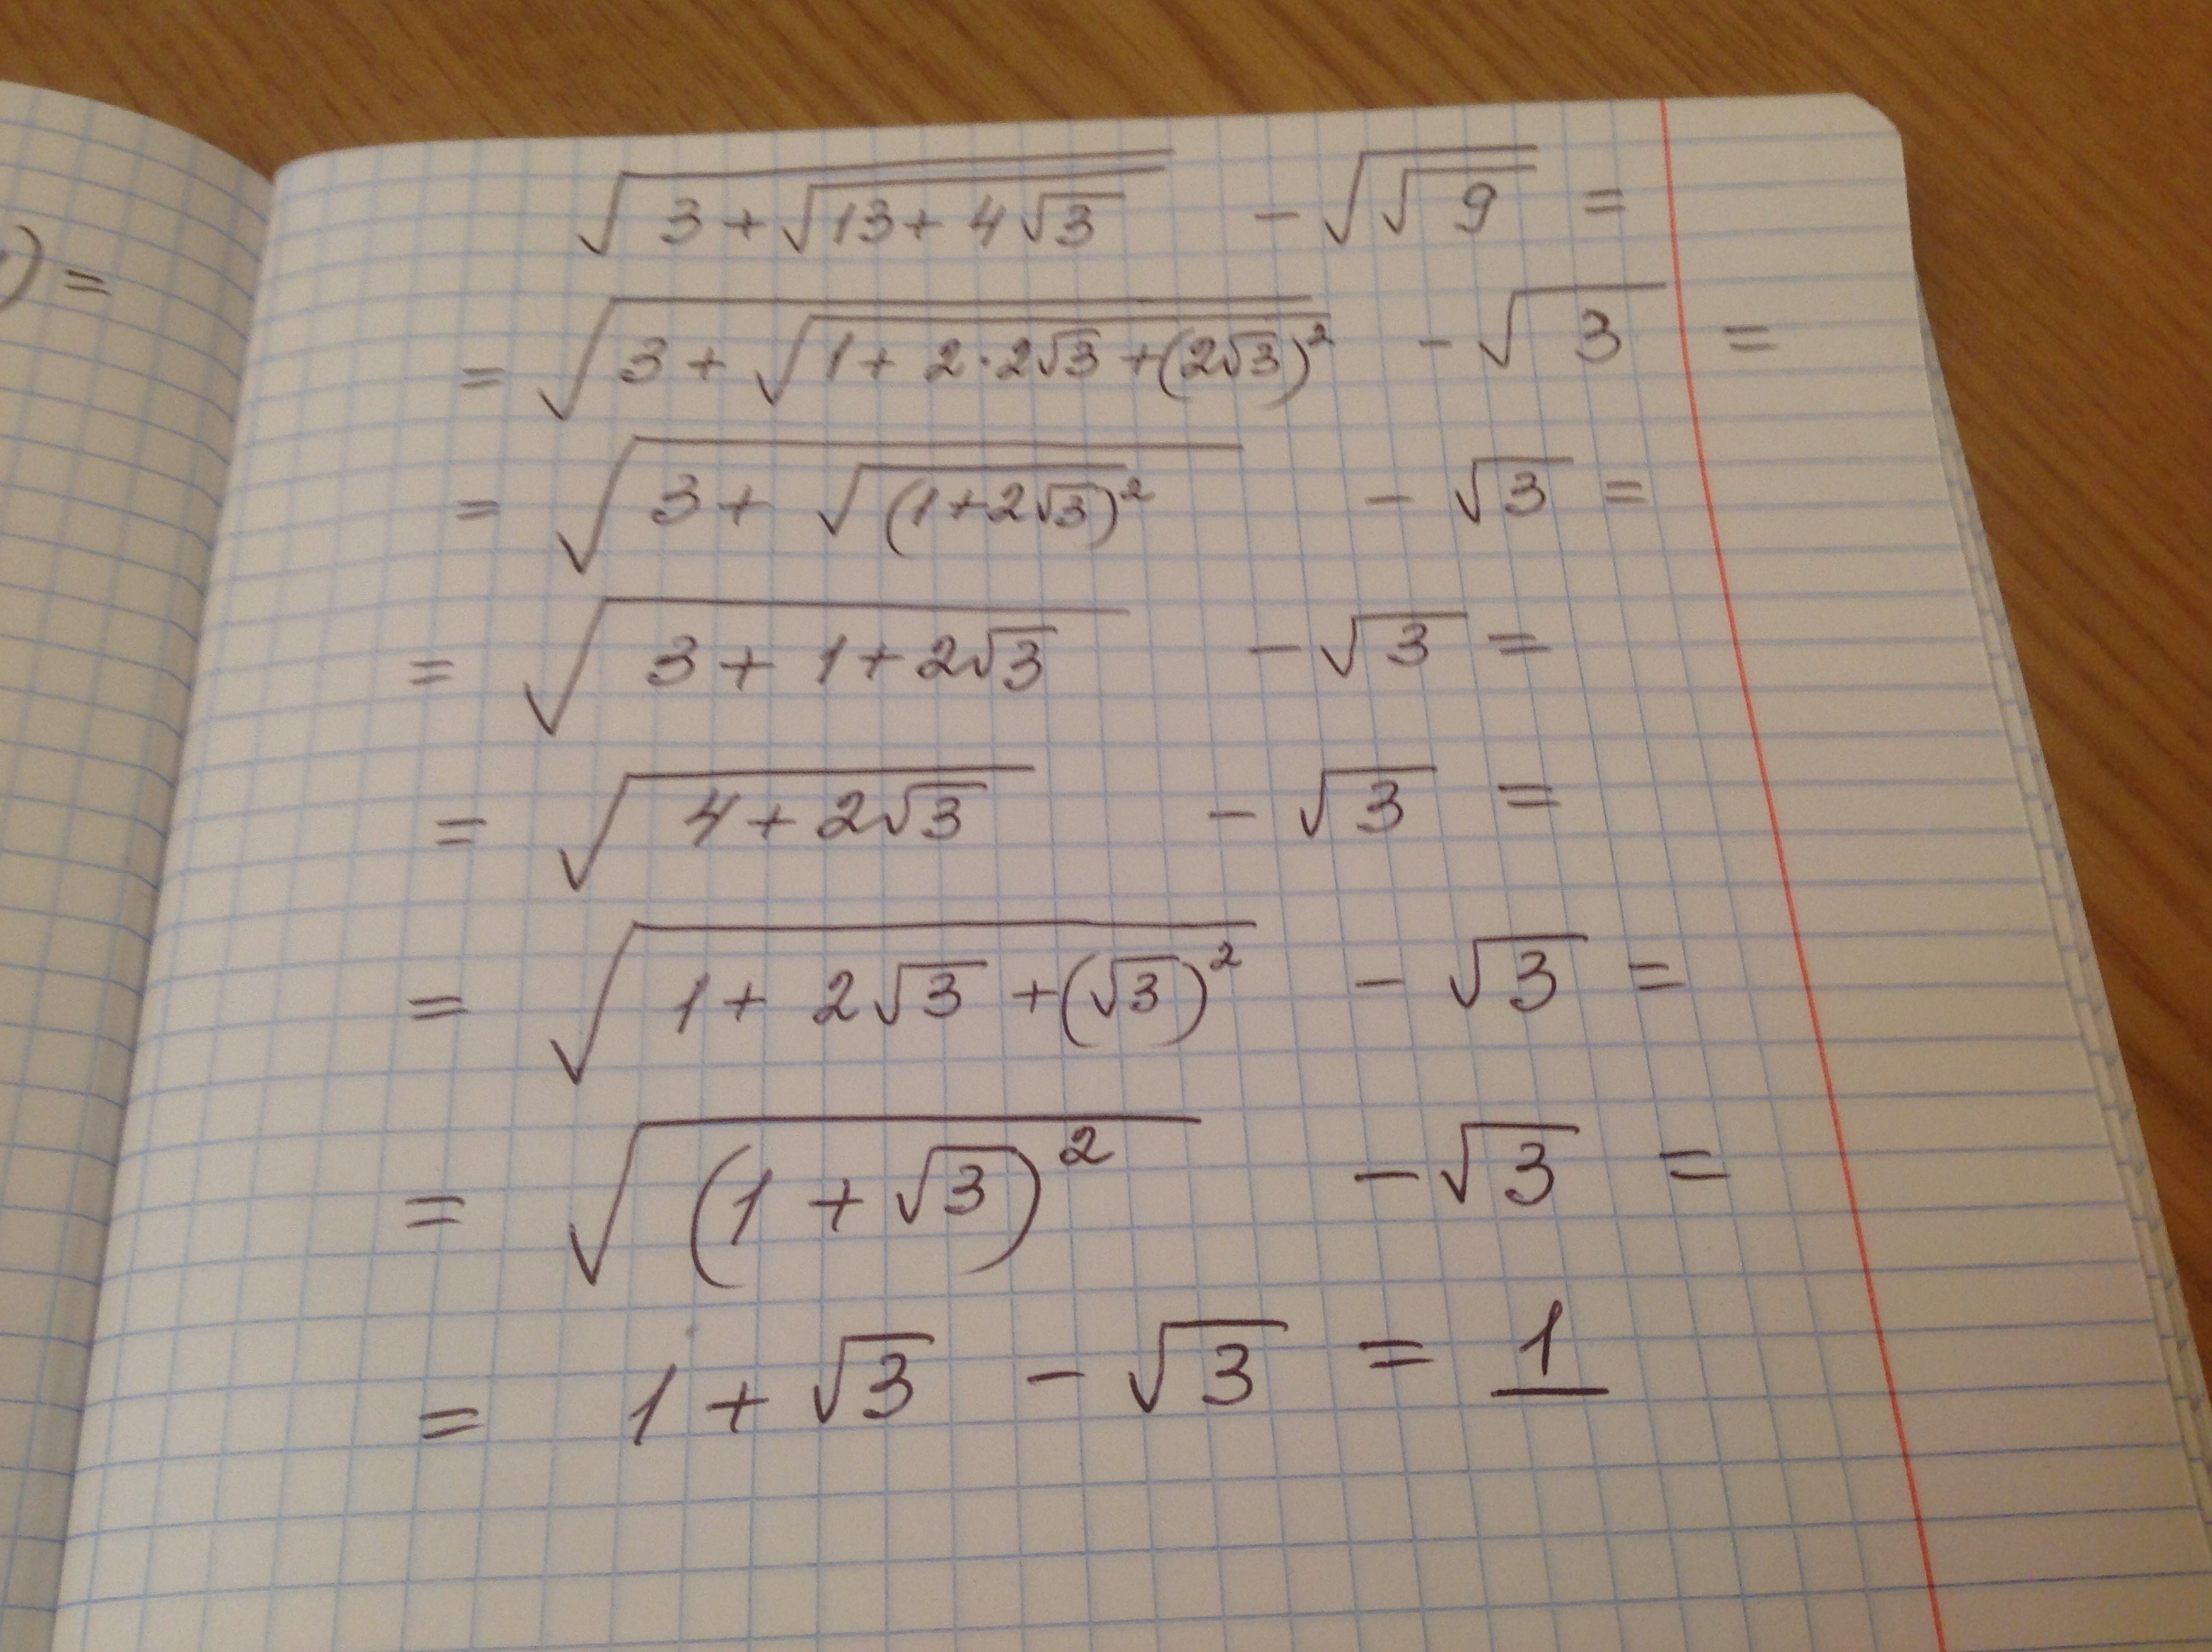 ) =
√(3 + √(13 + 4√3)) - √(√9) =
= √(3 + √(1 + 2·2√3 + (2√3)²)) - √3 =
= √(3 + √((1+2√3)²)) - √3 =
= √(3 + 1 + 2√3) - √3 =
= √(4 + 2√3) - √3 =
= √(1 + 2√3 + (√3)²) - √3 =
= √((1 + √3)²) - √3 =
= 1 + √3 - √3 = 1